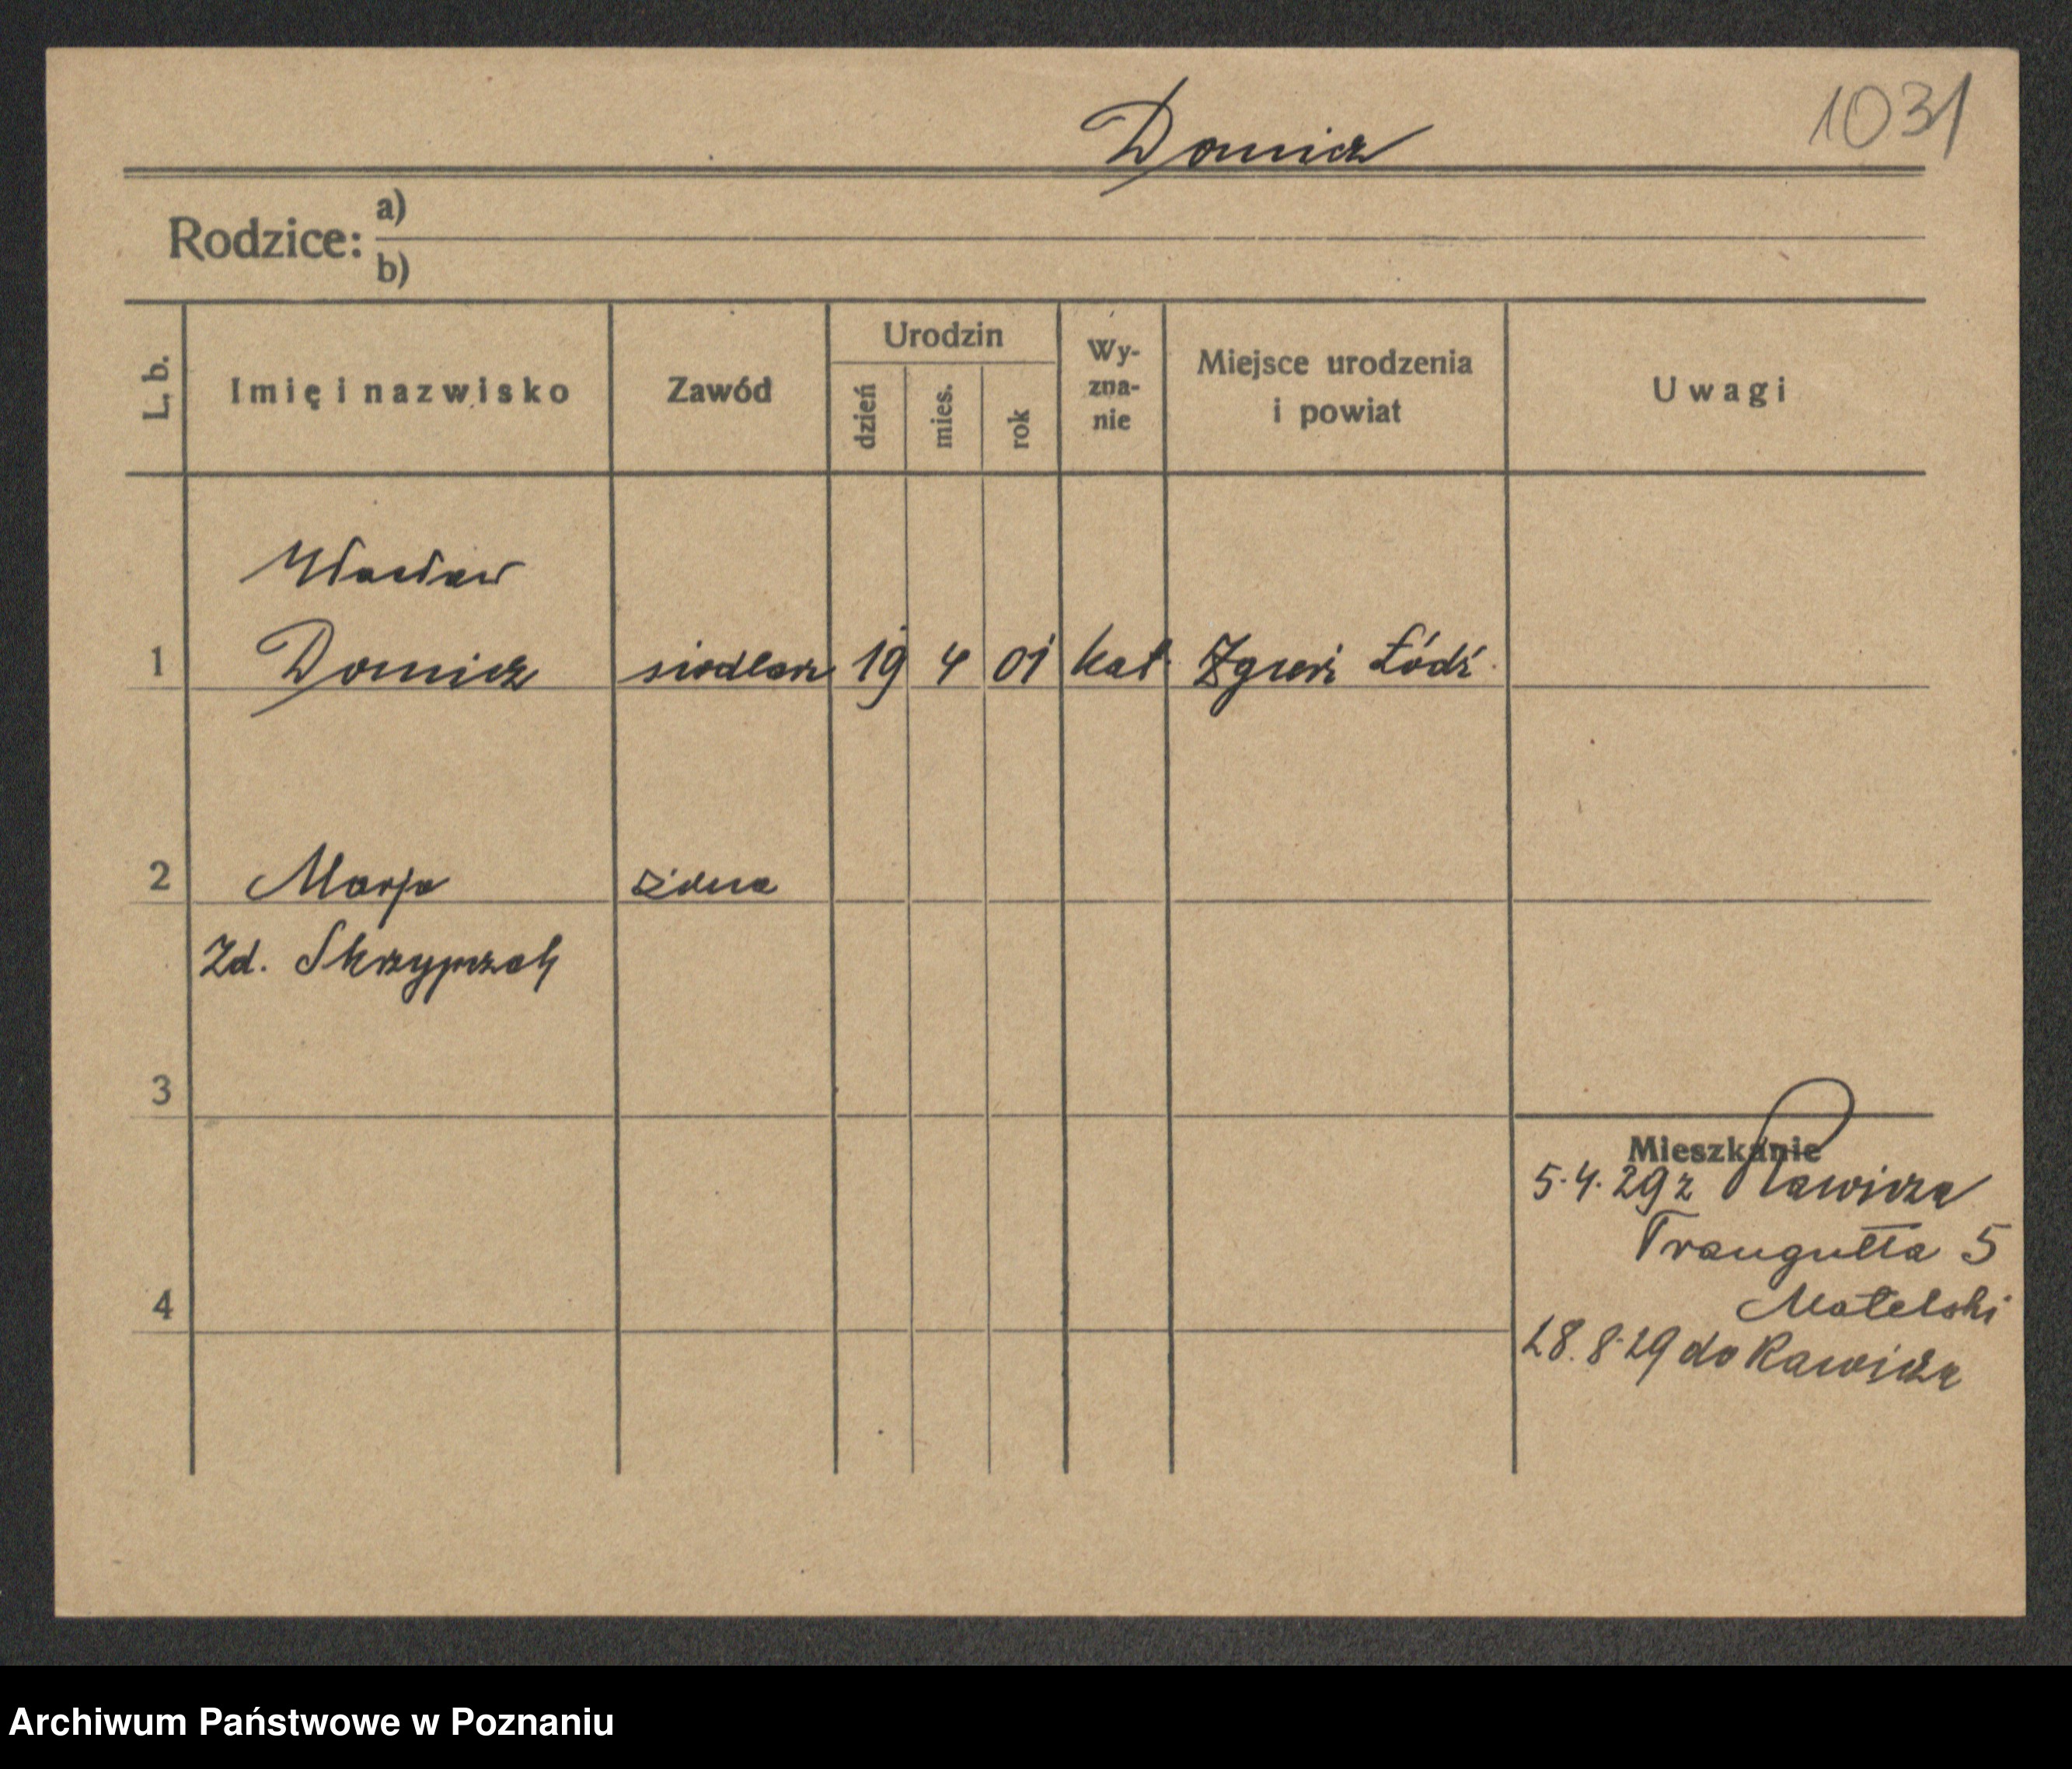 1031
Domicz
Rodzice:
a)
b)
L. b.
Imię i nazwisko
Zawód
Urodzin
dzień
mies.
rok
Wy-
zna-
nie
Miejsce urodzenia
i powiat
Uwagi
Wacław
1 Domicz siodlarz 19 4 01 kat. Zgierz Łódź.
2 Marja żona
Zd. Skrzypczak
3
Mieszkanie
5.4.29 z Rawicza
Traugutta 5
Matelski
4
28.8.29 do Rawicza
Archiwum Państwowe w Poznaniu